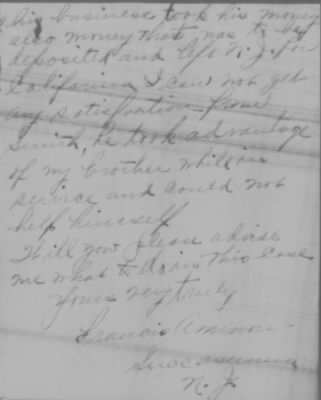 his business took his money
also money that was to be
deposited and left N. J. for
California I can not get
any satisfaction from
Smith, he took advantage
of my brother while in
service and could not
help himself
Will you please advise
me what to do in this case
Yours very truly
Francis
N. J.